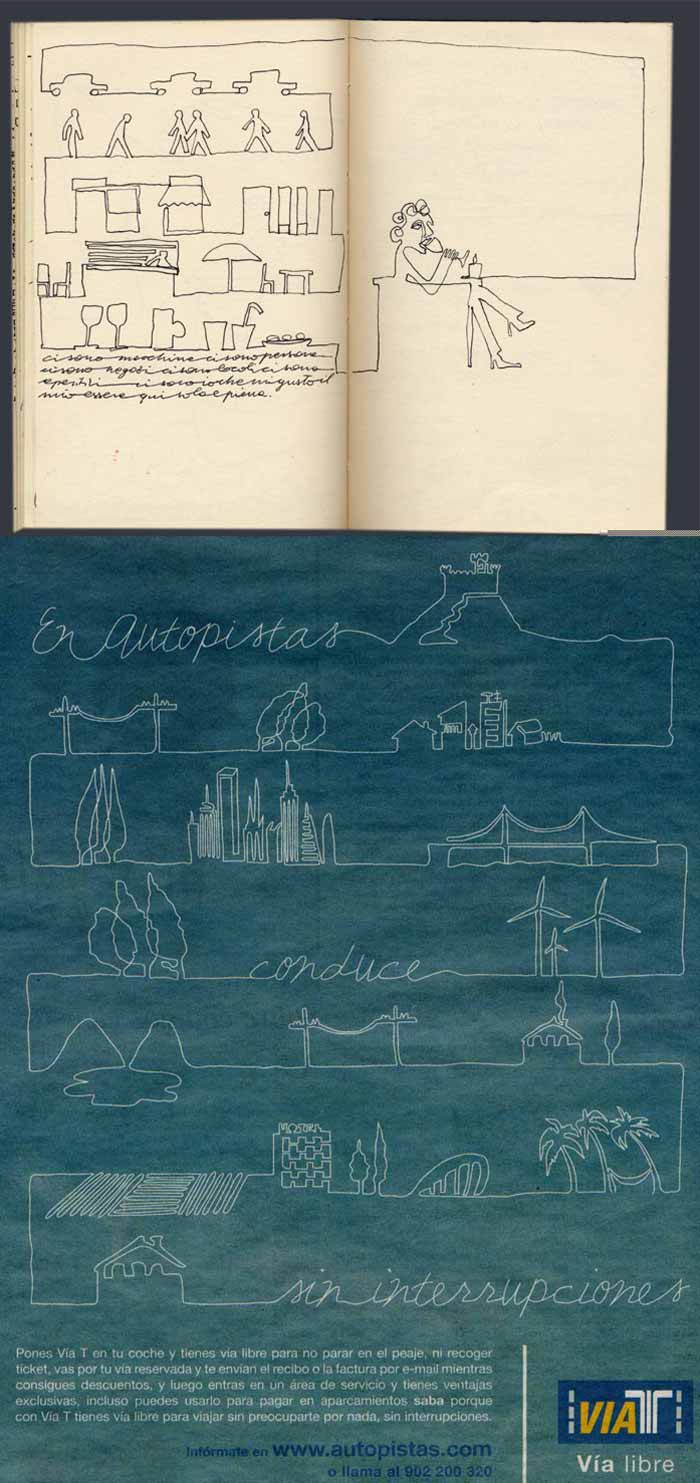 ci sono macchine ci sono persone
ci sono negozi ci sono locali ci sono
aperitivi ci sono io che mi gusto il
mio essere qui sola e piena.
En autopistas
conduce
sin interrupciones
Pones Vía T en tu coche y tienes vía libre para no parar en el peaje, ni recoger
ticket, vas por tu vía reservada y te envían el recibo o la factura por e-mail mientras
consigues descuentos, y luego entras en un área de servicio y tienes ventajas
exclusivas, incluso puedes usarlo para pagar en aparcamientos saba porque
con Vía T tienes vía libre para viajar sin preocuparte por nada, sin interrupciones.
Infórmate en www.autopistas.com
o llama al 902 200 320
VIAT
Vía libre